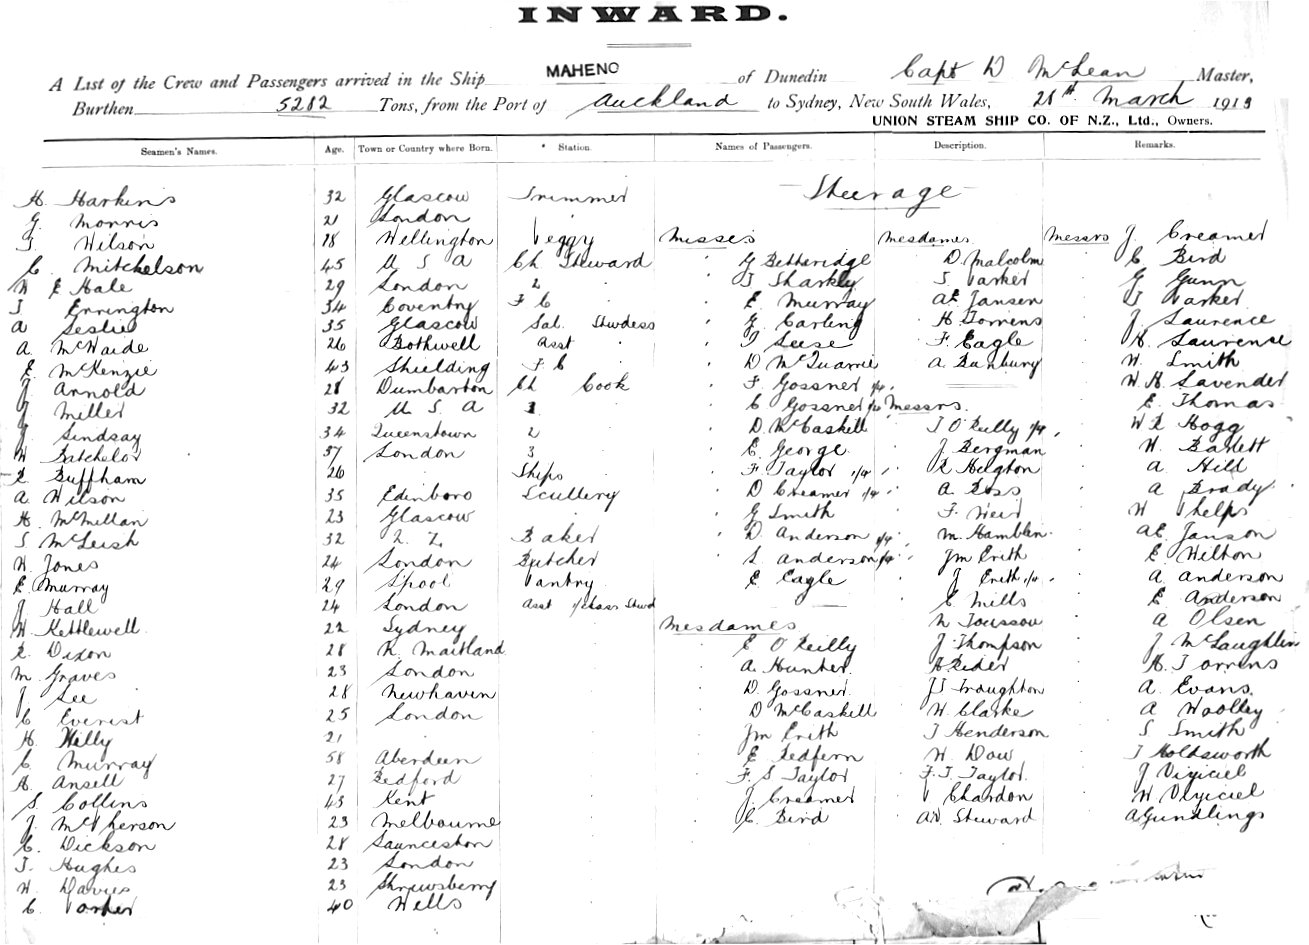 INWARD.
A List of the Crew and Passengers arrived in the Ship MAHENO of Dunedin Capt D McLean Master,
Burthen 5282 Tons, from the Port of Auckland to Sydney, New South Wales, 28th March 1913
UNION STEAM SHIP CO. OF N.Z., Ltd., Owners.
Seamen's Names. Age. Town or Country where Born. Station. Names of Passengers. Description. Remarks.
Steerage
H. Harkins 32 Glascow Trimmer
G. Morris 21 London "
T Wilson 18 Wellington Peggy Misses Mesdames Messrs J Creamer
C. Mitchelson 45 U S A Ch Steward " G Betheridge D. Malcolm " C Bird
W E Hale 29 London 2 " " T Sharkly " S Parker " G Gunn
T Errington 34 Coventry F C " " E Murray " AE Jansen " T Parker
A Leslie 35 Glascow Sal. Stwdess " G Carling " H Torrens " J Laurence
A. McWaide 26 Bothwell Asst " " T Leese " F Eagle " H. Laurence
E McKenzie 43 Shielding F C " " D McQuarrie " A. Bunbury " W. Smith
J Arnold 28 Dumbarton Ch Cook " F Gossner 1/4 " W. H. Lavender
J Miller 32 U S A 1 " " C Gossner Messrs. " E Thomas
J Lindsay 34 Queenstown 2 " " D. McCaskill T O'Reilly 1/4 " W R Hogg
W Batchelor 37 London 3 " " E. George " J Bergman " W. Barlett
R Buffham 26 " Ships " " F Taylor 1/4 " R Helgton " A Hill
A Wilson 35 Edinboro Scullery " D Creamer 1/4 " A Ross " A Brady
H. McMillan 23 Glascow " G Smith " F. Weir " W Phelps
S McLeish 32 N. Z. Baker " D Anderson 1/4 " M. Hamblin " AE Janson
W. Jones 24 London Butcher " S Anderson 1/4 " Jm Erith " E Wilton
E Murray 29 Lpool Pantry " E Eagle " J Erith 1/4 " A. Anderson
J Hall 24 London Asst 1/class Stwd " C Mills " E Anderson
W. Kettlewell 22 Sydney Mesdames " A Olsen
R Dixon 28 W. Maitland " E O'Reilly " J Thompson " J McLaughlin
M Graves 23 London " A Hunter " H Rider " H. Torrens
J Lee 28 Newhaven " D. Gossner " JS Troughton " A. Evans.
C Everist 25 London " D McCaskill " W. Clarke " A Woolley
H Willy 21 " " Jm Erith " T Henderson " S Smith
C Murray 58 Aberdeen " E Redfern " W Dow " T Holdsworth
H. Ansell 27 Bedford " F. S Taylor " F. T. Taylor
S Collins 43 Kent " J. Creamer " P Chardon
J. McPherson 23 Melbourne " C Bird " AD Steward " A Gundlings
C. Dickson 28 Launceston
T. Hughes 23 London
W Davies 23 Shrewsberry
C. Parker 40 Wells